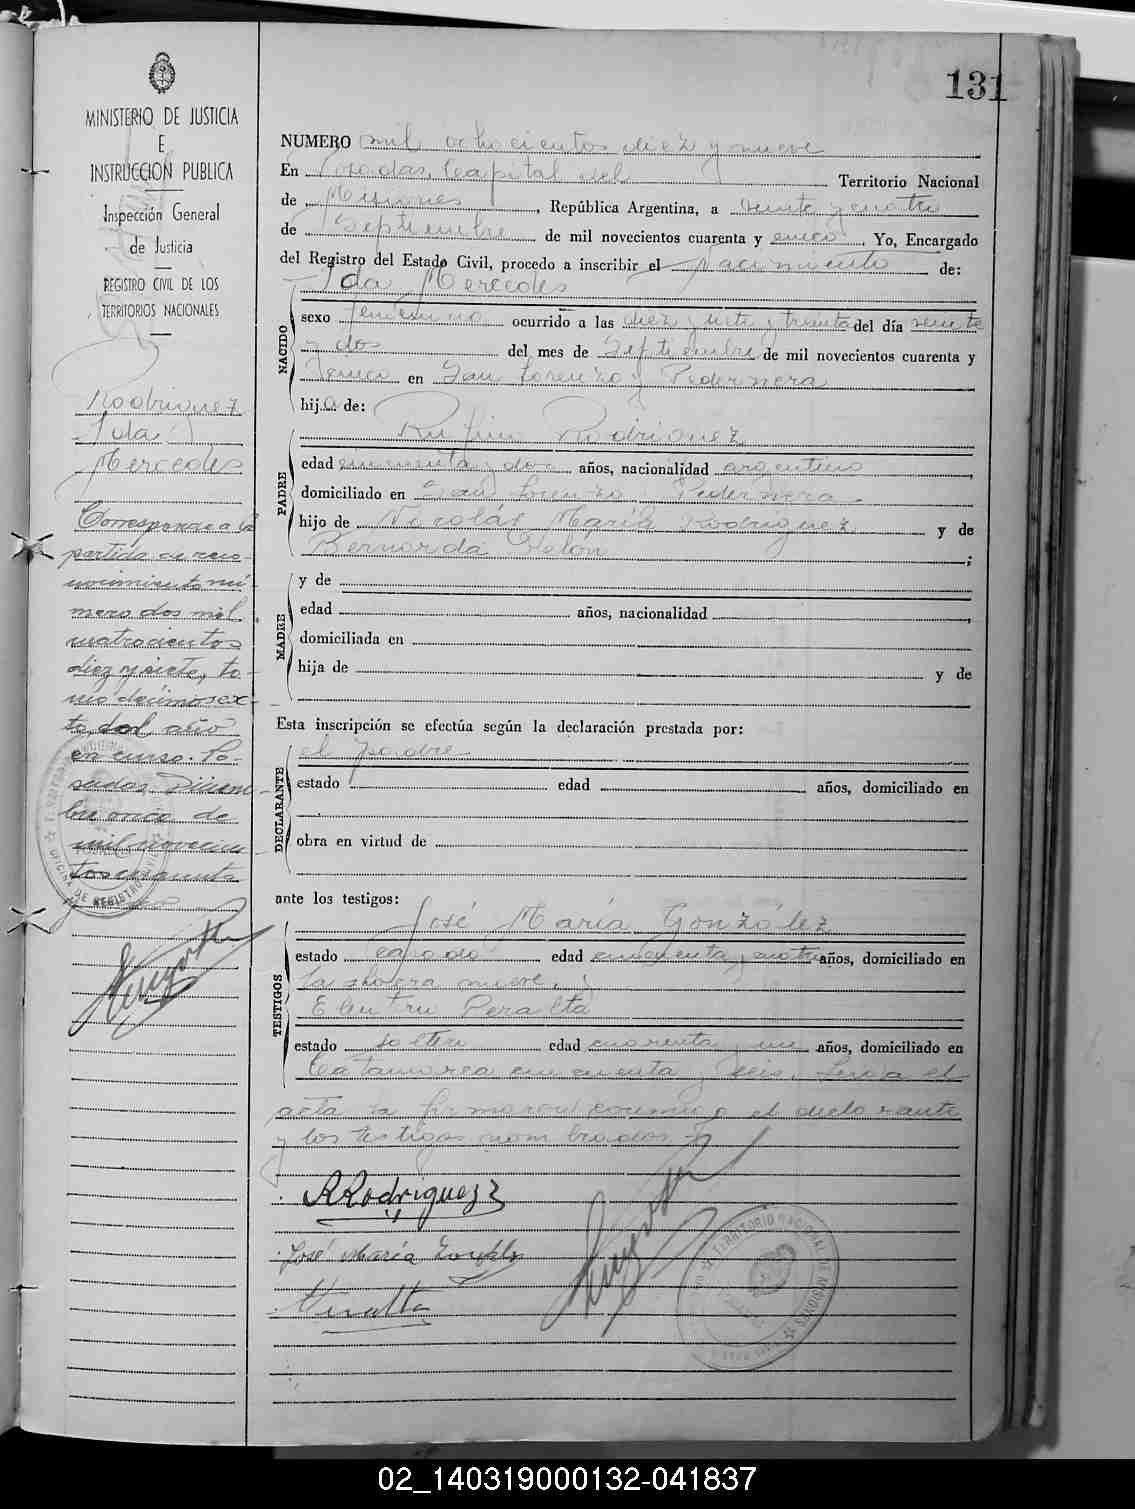 131
MINISTERIO DE JUSTICIA
E
INSTRUCCION PUBLICA
Inspección General
de Justicia
REGISTRO CIVIL DE LOS
TERRITORIOS NACIONALES
Rodriguez
Ida
Mercedes
Corresponde a la
partida de reco-
nocimiento nú-
mero dos mil
cuatrocientos
diez y siete, to-
mo décimosex-
to, del año
en curso. Po-
sadas, Diciem-
bre once de
mil novecien
tos cuarenta
NUMERO mil ochocientos diez y nueve
En Posadas, Capital del Territorio Nacional
de Misiones, República Argentina, a veinte y cuatro
de Septiembre de mil novecientos cuarenta y cinco. Yo, Encargado
del Registro del Estado Civil, procedo a inscribir el Nacimiento de:
NACIDO
Ida Mercedes
sexo femenino ocurrido a las diez y siete y treinta del día veinte
y dos del mes de Septiembre de mil novecientos cuarenta y
cinco en San Lorenzo y Pedernera
hija de:
PADRE
Rufino Rodriguez
edad cincuenta y dos años, nacionalidad argentino
domiciliado en San Lorenzo Pedernera
hijo de Nicolás María Rodriguez y de
Bernarda ;
MADRE
y de
edad años, nacionalidad ,
domiciliada en
hija de y de
Esta inscripción se efectúa según la declaración prestada por:
DECLARANTE
el padre
estado edad años, domiciliado en
obra en virtud de
ante los testigos:
TESTIGOS
José María González
estado casado edad cincuenta y cuatro años, domiciliado en
la chacra nueve, y
Eleuterio Peralta
estado soltero edad cuarenta y un años, domiciliado en
Catamarca cincuenta y seis. Leída el
acta la firmaron conmigo el declarante
y los testigos nombrados
RRodriguez
José María González
Peralta
TERRITORIO NACIONAL DE MISIONES
OFICINA DE REGISTRO
02_140319000132-041837